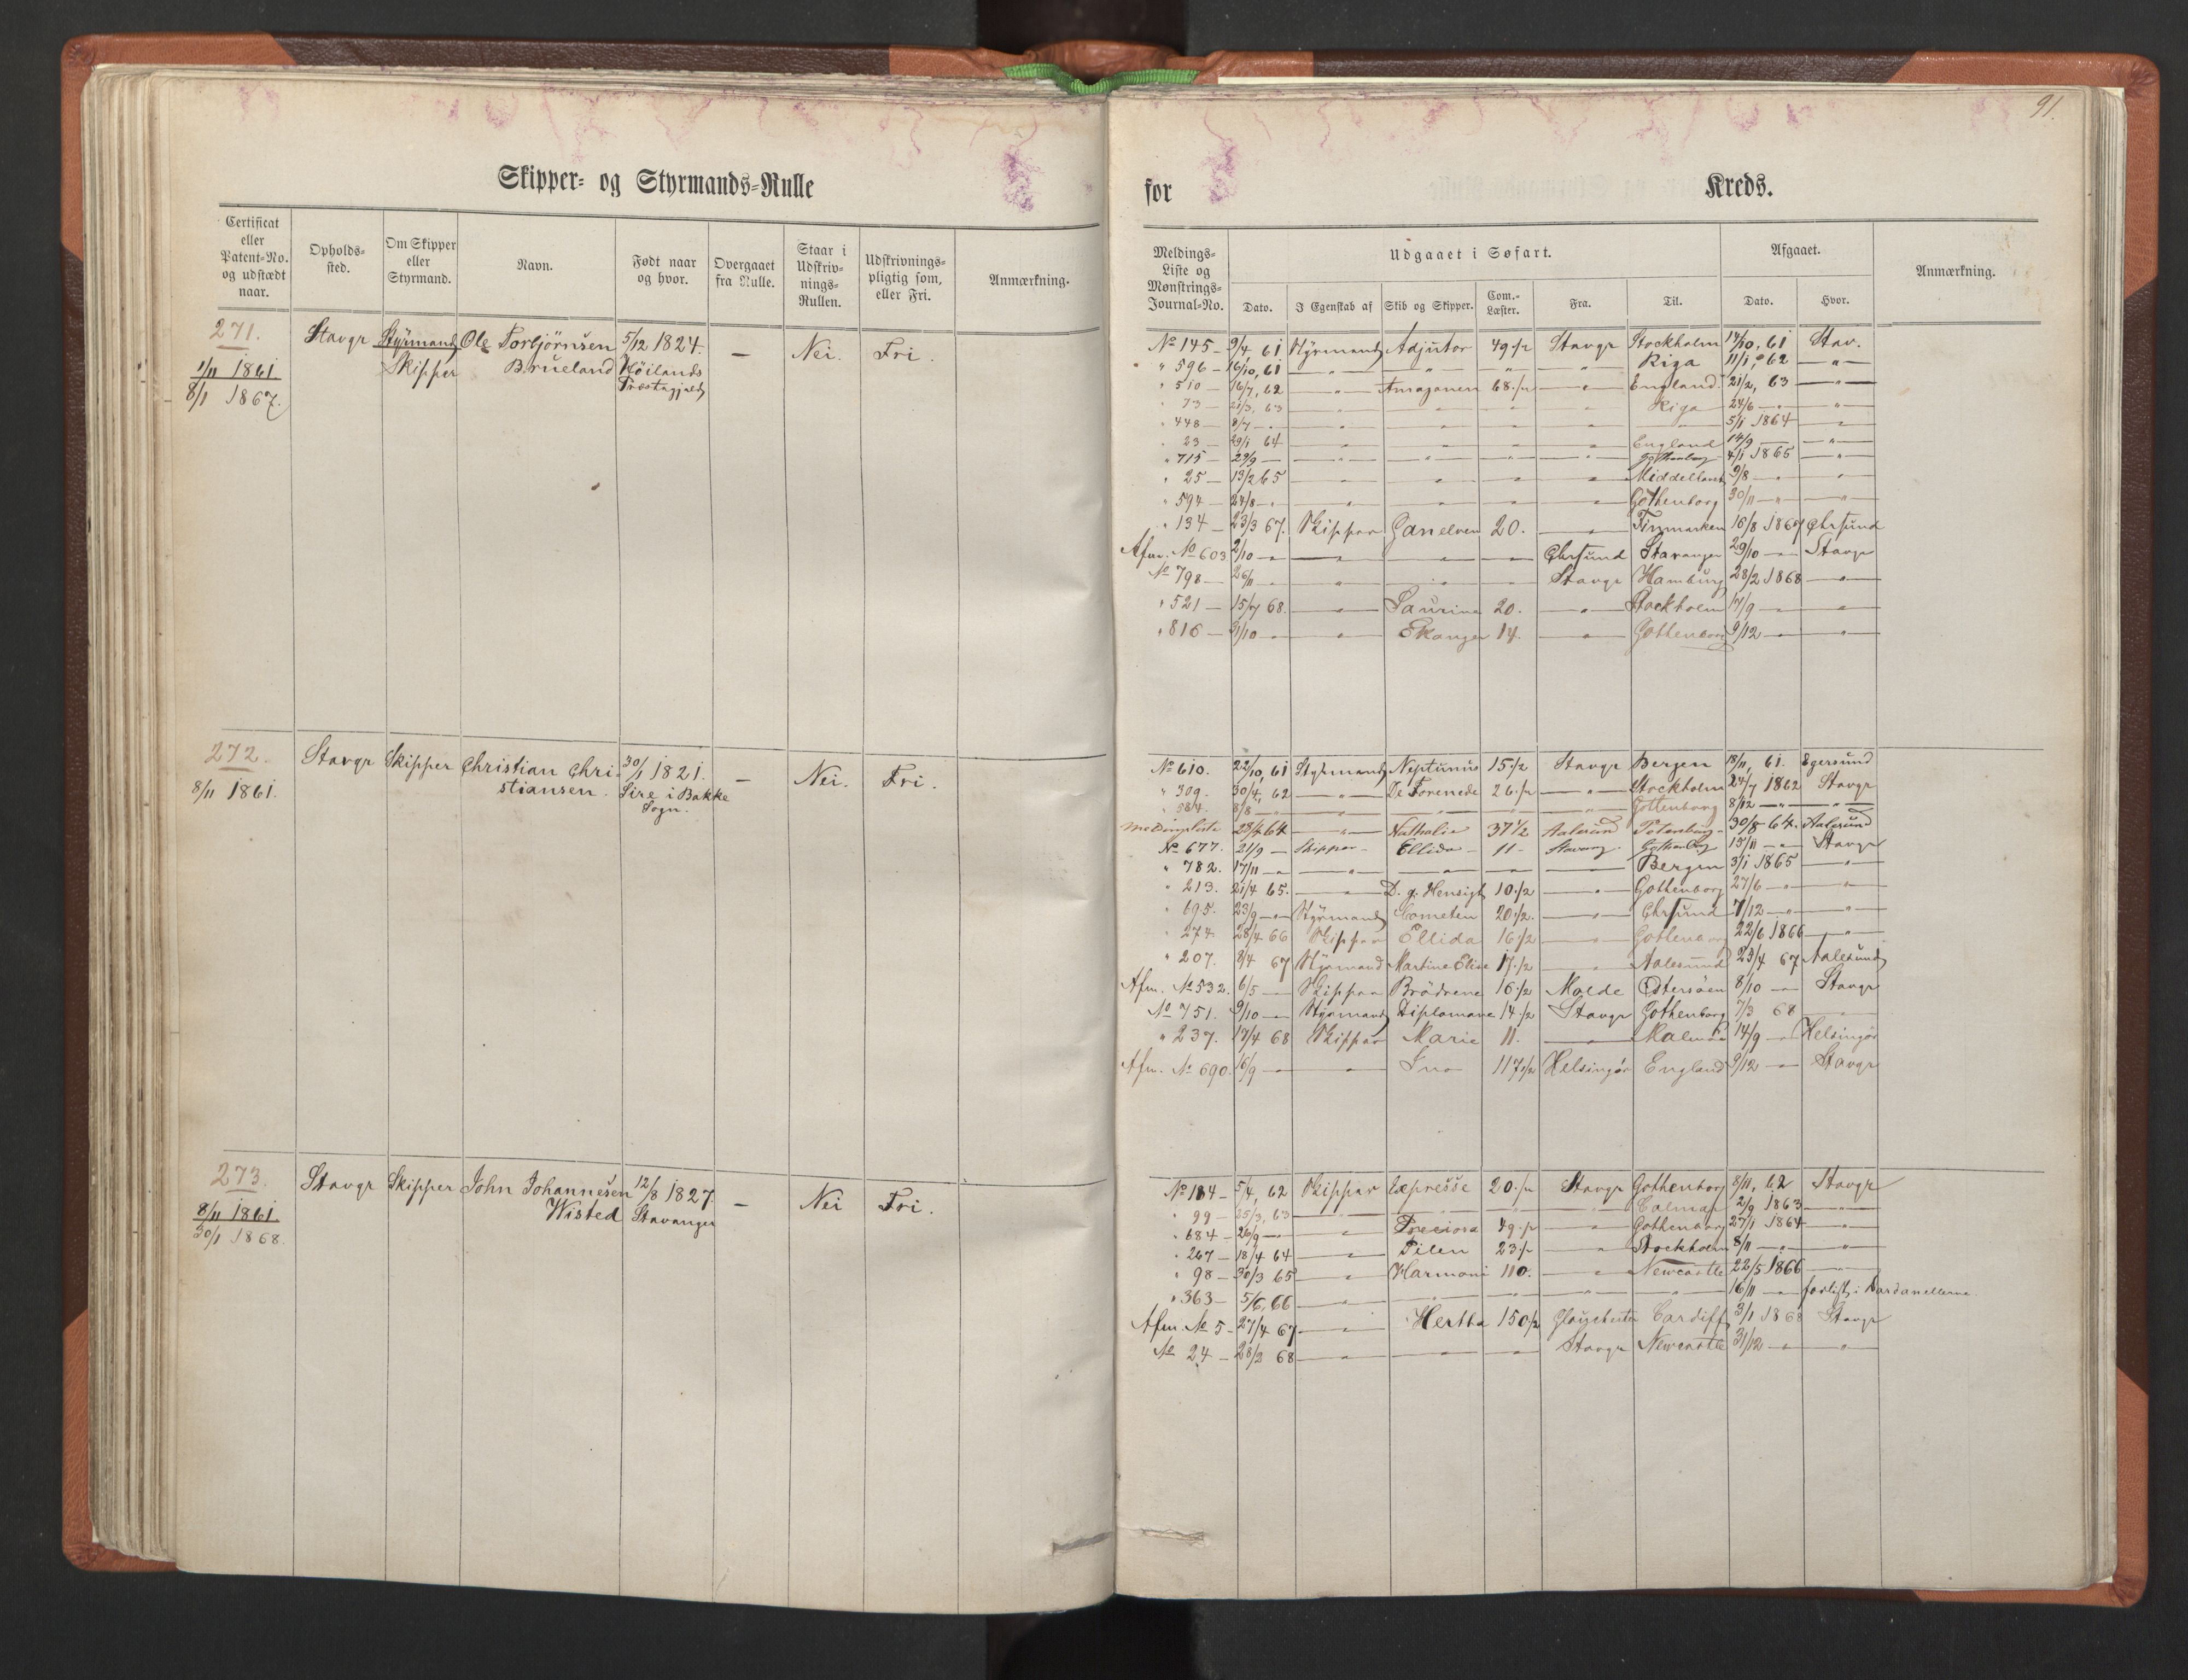 91.
Skipper- og Styrmands-Rulle
for Kreds.
Certificat eller Patent-No. og udstædt naar.
Opholds-sted.
Om Skipper eller Styrmand.
Navn.
Født naar og hvor.
Overgaaet fra Rulle.
Staar i Udskriv-nings-Rullen.
Udskrivnings-pligtig som, eller Fri.
Anmærkning.
Meldings-Liste og Mønstrings-Journal-No.
Udgaaet i Søfart.
Dato.
I Egenskab af
Skib og Skipper.
Com.-Læster.
Fra.
Til.
Afgaaet.
Dato.
Hvor.
Anmærkning.
271. Stavgr Styrmand Ole Torbjörnsen 5/12 1824. — Nei. Fri.
1/11 1861. Skipper Brueland Höilands
8/1 1867. Præstegjeld
No 145 — 9/4, 61 Styrmand Adjutor 49 1/2 Stavgr Stockholm 14/10, 61 Stav.
" 596 — 16/10, 61 — " — " " " Riga 11/1, 62 — " —
" 510 — 16/7, 62 — " — Amazonen 68 1/2 — " — England 21/2, 63 — " —
" 73 — 21/3, 63 — " — " " " Riga 24/6 — " — " —
" 448 — 8/7 — " — " " " " " 5/1 1864 — " —
" 23 — 29/1 64 — " — " " " England 14/9 — " —
" 715 — 29/9 — " — " " " Gothenborg 4/1 1865 — " —
" 25 — 13/2 65 — " — " " " Middelhavet 9/8 — " — " —
" 594 — 24/8 — " — " " " Göthenborg 30/11 — " — " —
" 134 — 23/3 67. Skipper Ganelven 20. — " — Finmarken 16/8 1867 Chrsund
Afm. No 603 2/10 — " — " " Chrsund Stavanger 29/10 — " — Stavgr
No 798 — 26/11 — " — " " Stavgr Hamburg 28/2 1868 — " —
" 521 — 15/7 68. — " — Laurine 20. — " — Stockholm 17/9 — " — " —
" 816 — 31/10 — " — Ekanger 14. — " — Gottenborg 9/12 — " — " —
272. Stavgr Skipper Christian Chri- 30/1 1821. — Nei. Fri.
8/11 1861. stiansen. Sire i Bakke
Sogn.
No 610. 22/10, 61 Styrmand Neptunus 15 1/2 Stavgr Bergen 18/11, 61. Egersund
" 309. 30/4, 62 — " — De Forenede 26 1/2 — " — Stockholm 24/7 1862 Stavgr
" 584. 8/8 — " — " " " Gottenborg 8/12 — " — " —
28/4 64 — " — Nathalie 37 1/2 Aalesund 30/8 64. Aalesund
No 677. 21/9 — Skipper — Ellida — 11 — Stavang. Gothenborg 15/11 — " — Stavgr
" 782. 17/11 — " — " — " — Bergen 3/1 1865 — " —
" 213. 21/4 65. — " — D. g. Hensigt 10 1/2 — " — Gottenborg 27/6 — " — " —
" 695. 23/9 — " — Styrmand Cometen 20 1/2. — " — Chrsund 7/12 — " — " —
" 274. 28/4 66 Skipper Ellida 16 1/2 — " — Gottenborg 22/6 1866 — " —
" 207. 8/4 67 Styrmand Martine Elise 17 1/2 — " — Aalesund 23/4 67 Aalesund
Afm. No 532. 6/5 — Skipper Brödrene 16 1/2 Molde Östersöen 8/10 — " — Stavgr
No 751. 9/10 — Styrmand Diplomane 14 1/2 Stavgr Gothenborg 7/3 68 — " —
" 237. 17/4 68 Skipper Marie 11. — " — Malmö 14/9 — " — Helsingör
Afm. No 690. 16/9 — " — Ino 117 1/2 Helsingör England 9/12 — " — Stavgr
273. Stavgr Skipper John Johannesen 12/8 1827. — Nei Fri.
8/11 1861. Wisted Stavanger
30/1 1868.
No 184 — 5/4, 62 Skipper Expresse 20 1/2 Stavgr Gothenborg 8/11, 62 Stavgr
" 99 — 25/3, 63 — " — " " " Calmar 2/9 1863 — " —
" 684 — 26/9 — " — Preciosa 49 1/2 — " — Gothenborg 27/1 1864 — " —
" 267 — 18/4 64 — " — Pilen 23 1/2 — " — Stockholm 8/11 — " — " —
" 98 — 30/3 65 — " — Harmoni 110. — " — Newcastle 22/5 1866 — " —
" 363 — 5/6, 66 — " — " " " " 16/11 — " — forlist i Dardanellerne.
Afm. No 5 — 27/4 67 — " — Hertha 150 1/2 Cardiff 3/1 1868 Stavgr
No 24 — 28/2 68 — " — " — " — Stavgr Newcastle 31/12 — " — " —